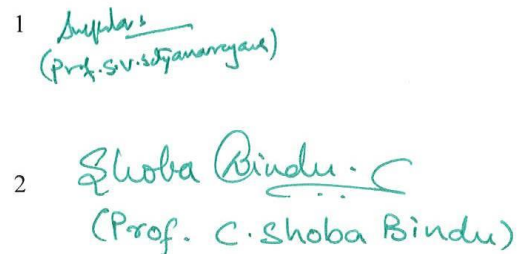 1
(Prof. S.V. Satyanarayana)
2 Shoba Bindu. C
(Prof. C. Shoba Bindu)